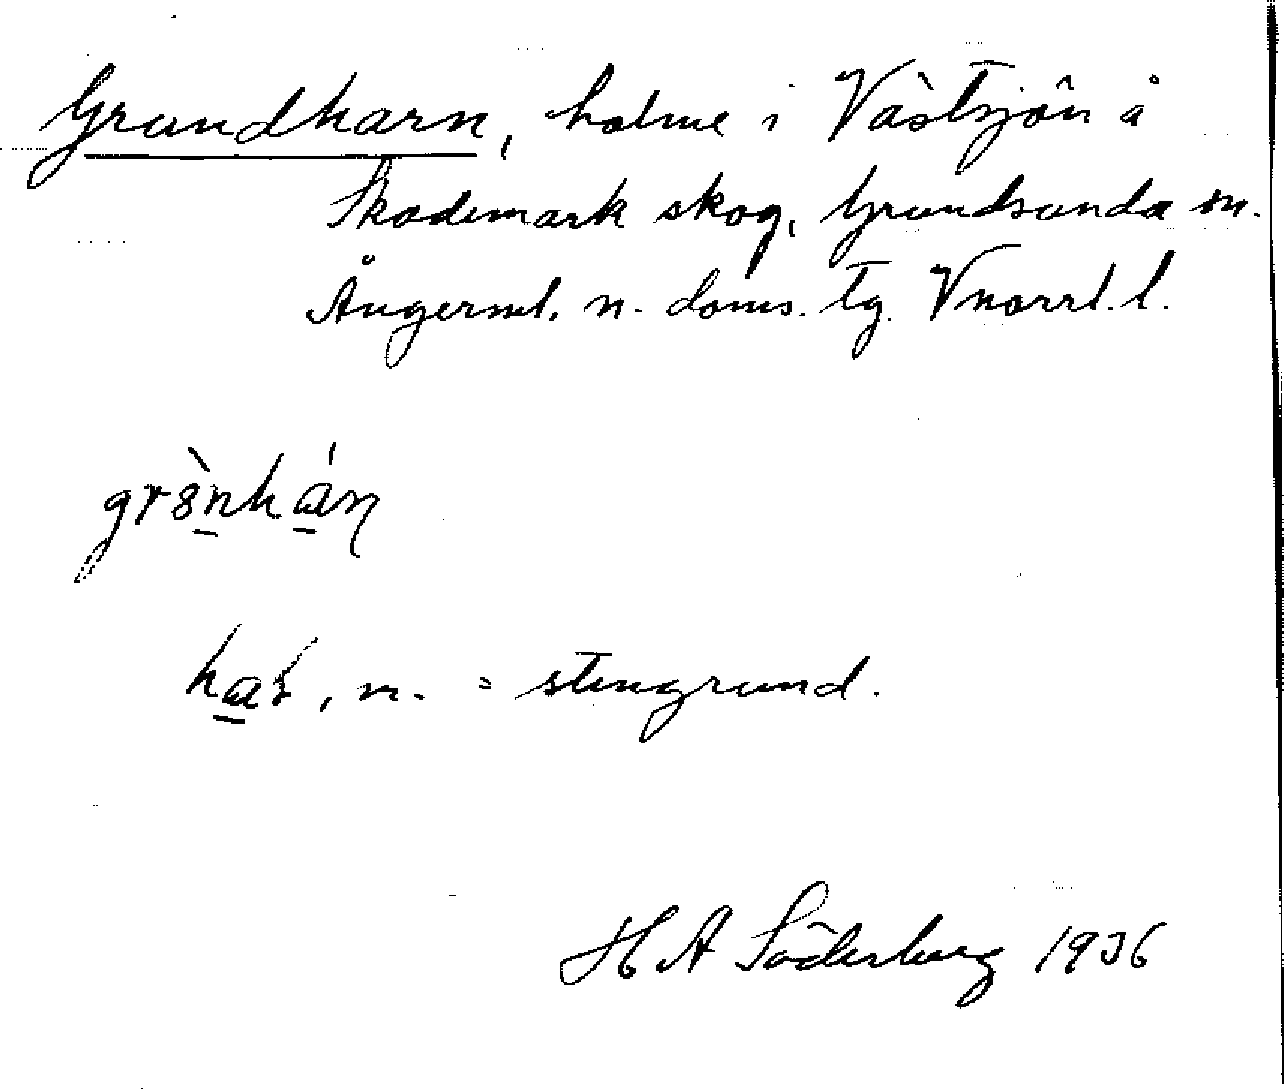 Grundharn, holme i Västsjön å
Skademark skog, Grundsunda sn.
Ångerml. n. doms. tg. Vnorrl. l.
grònhán
har, n. = stengrund.
H A Söderberg 1936